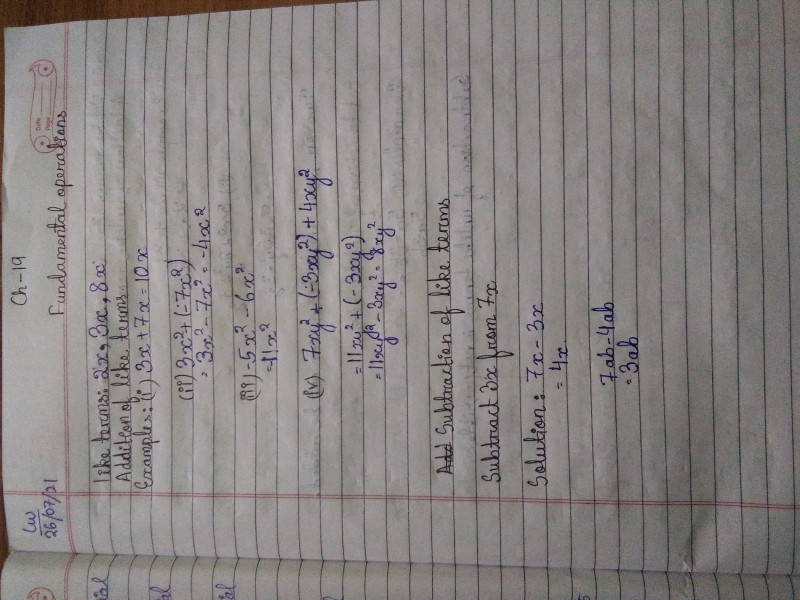 Ch-19
CW
26/07/21
Date
Page
Fundamental operations
like terms: 2x, 3x, 8x
Addition of like terms
Examples: (i) 3x+7x=10x
(ii) 3x²+(-7x²)
= 3x²-7x² = -4x²
(iii) -5x² - 6x²
=11x²
(v) 7xy²+(-3xy²)+4xy²
=11xy²+(-3xy²)
=11xy²-3xy²=8xy²
Add Subtraction of like terms
Subtract 3x from 7x
Solution: 7x-3x
= 4x
7ab-4ab
=3ab